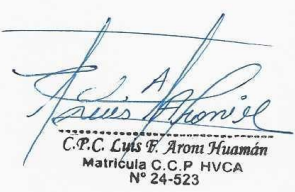 C.P.C. Luis F. Aroni Huamán
Matricula C.C.P HVCA
N° 24-523